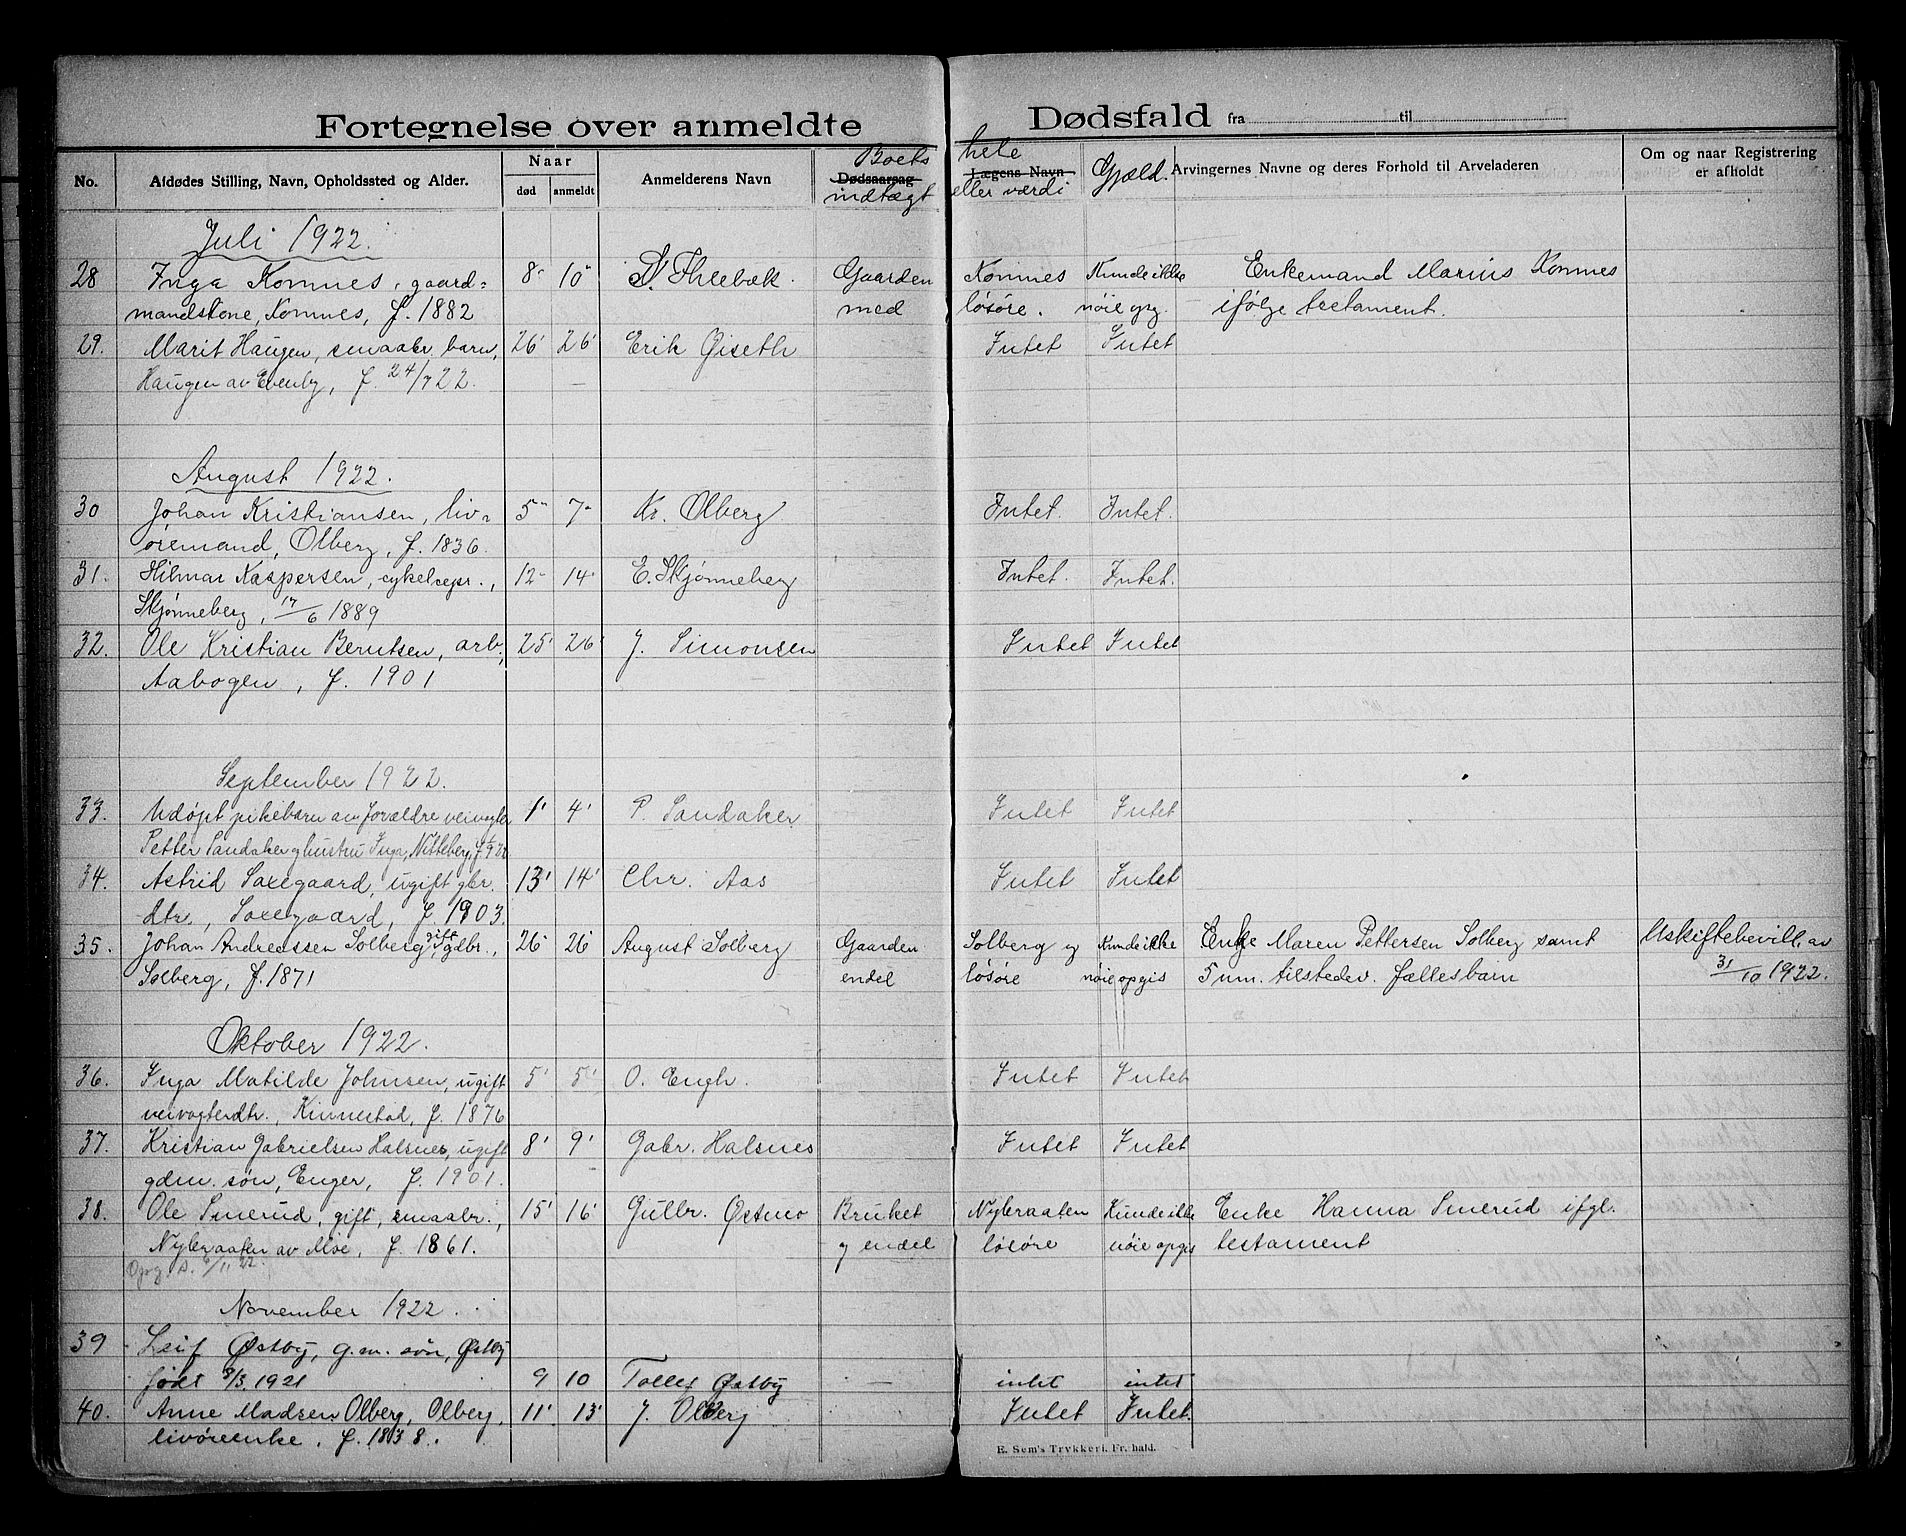 Fortegnelse over anmeldte Dødsfald fra til
No. Afdødes Stilling, Navn, Opholdssted og Alder. Naar død anmeldt Anmelderens Navn Dødsaarsag Boets indtægt Lægens Navn hele eller værdi Gjæld. Arvingernes Navne og deres Forhold til Arveladeren Om og naar Registrering er afholdt
Juli 1922.
28 Inga Komnes, gaard= 8 10 Gaarden Komnes Kunde ikke Enkemand Marius Komnes
mandskone, Komnes, f. 1882 med løsøre. nøie opg. ifølge testament.
29. Marit Haugen, smaabr. barn, 26 26 Erik Øiseth Intet Intet
Haugen av Evenby, f. 24/7 22.
August 1922.
30 Johan Kristiansen, liv= 5 7 Kr. Olberg Intet. Intet.
øremand, Olberg, f. 1836.
31. Hilmar Kaspersen, cykelrepr., 12 14 E. Skjønneberg Intet. Intet.
Skjønneberg, 17/6 1889
32. Ole Kristian Berntsen, arb., 25 26 J. Simonsen Intet Intet
Aabogen, f. 1901
September 1922.
33. Udøpt pikebarn av forældre veivogter 1 4 P. Sandaker Intet Intet
Petter Sandaker og hustru Inga, Nitteberg,
34. Astrid Saxegaard, ugift gbr. 13 14 Chr. Aas Intet Intet
dtr., Saxegaard, f. 1903.
35. Johan Andreassen Solberg, gift gdbr., 26 26 August Solberg Gaarden Solberg og Kunde ikke Enke Maren Pettersen Solberg samt Uskiftebevill. av
Solberg, f. 1871 endel løsøre nøie opgis 5 um. tilstedev. fællesbarn 31/10 1922.
Oktober 1922.
36. Inga Matilde Johnsen, ugift 5 5 O. Engh. Intet Intet
veivogterdtr., Kinnestad, f. 1876
37. Kristian Gabrielsen Halsnes, ugift 8 9 Gabr. Halsnes Intet Intet
gdm. søn, Enger, f. 1901.
38. Ole Smerud, gift, smaabr., 15 16 Gulbr. Østmo Bruket Nybraaten Kunde ikke Enke Hanna Smerud ifgl.
Nybraaten av Moe, f. 1861. og endel løsøre nøie opgis testament
Opg. s. 6/11 22.
November 1922.
39 Leif Østby, g.m. søn, Østby
født 8/3 1921 9 10 Tollef Østby — intet intet
40. Anne Madsen Olberg, Olberg, 11 13 J. Olberg Intet Intet.
livøreenke, f. 1838.
E. Sem's Trykkeri. Fr.hald.